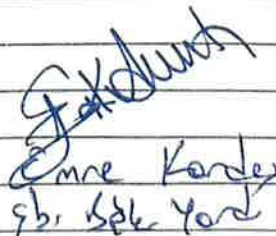 Emre Kardeş
Şb. Bşk. Yard